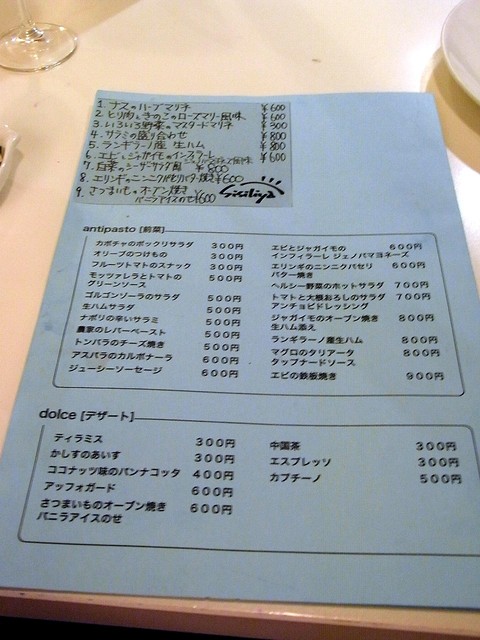 1. ナスのハーブマリネ ¥600
2. とり肉ときのこのローズマリー風味 ¥600
3. いろいろ野菜のマスタードマリネ ¥300
4. サラミの盛り合わせ ¥800
5. ランギラーノ産 生ハム ¥800
6. エビとジャガイモのインフィラーレ ¥600
7. 白菜のシーザーサラダ風 ¥800
8. エリンギのニンニクパセリバター焼き ¥600
9. さつまいものオーブン焼き
バニラアイスのせ ¥600
Siciliya
antipasto [前菜]
カボチャのポックリサラダ 300円
オリーブのつけもの 300円
フルーツトマトのスナック 300円
モッツァレラとトマトの 500円
グリーンソース
ゴルゴンゾーラのサラダ 500円
生ハムサラダ 500円
ナポリの辛いサラミ 500円
農家のレバーペースト 500円
トンパラのチーズ焼き 500円
アスパラのカルボナーラ 600円
ジューシーソーセージ 600円
エビとジャガイモの 600円
インフィラーレ ジェノバマヨネーズ
エリンギのニンニクパセリ 600円
バター焼き
ヘルシー野菜のホットサラダ 700円
トマトと大根おろしのサラダ 700円
アンチョビドレッシング
ジャガイモのオーブン焼き 800円
生ハム添え
ランギラーノ産生ハム 800円
マグロのタリアータ 800円
タップナードソース
エビの鉄板焼き 900円
dolce [デザート]
ティラミス 300円
かしすのあいす 300円
ココナッツ味のパンナコッタ 400円
アッフォガード 600円
さつまいものオーブン焼き 600円
バニラアイスのせ
中国茶 300円
エスプレッソ 300円
カプチーノ 500円